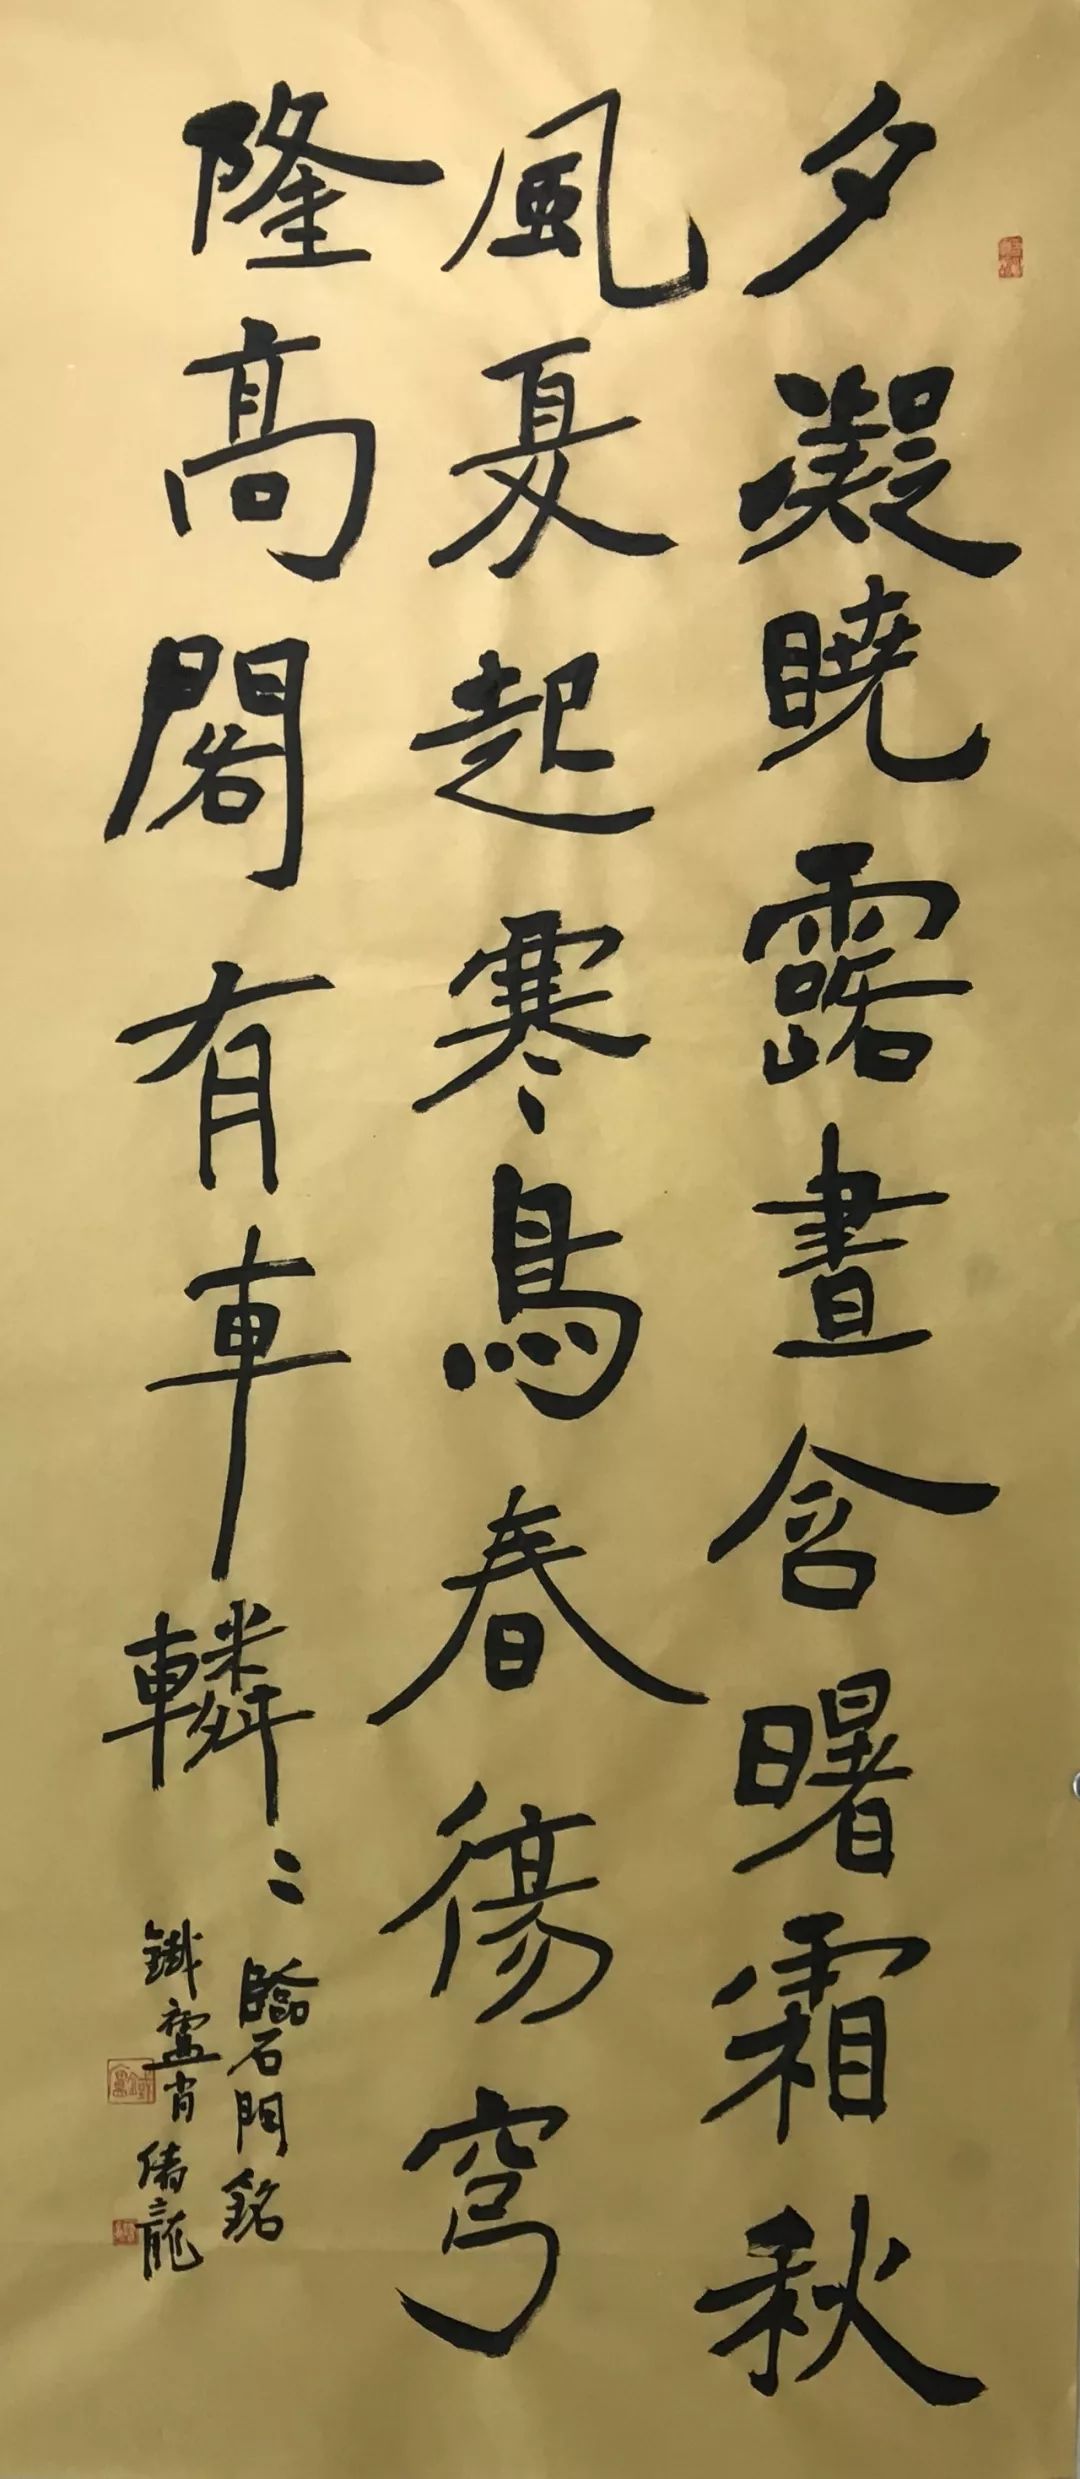 夕凝曉露晝含曙霜秋
風夏起寒鳥春傷穹
隆高閣有車轔〻
臨石門銘
鐵廬肖傳龍